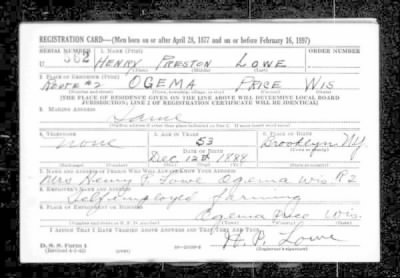 REGISTRATION CARD—(Men born on or after April 28, 1877 and on or before February 16, 1897)
SERIAL NUMBER 1. NAME (Print) ORDER NUMBER
U 362 HENRY PRESTON LOWE
(First) (Middle) (Last)
2. PLACE OF RESIDENCE (Print)
ROUTE #2 OGEMA PRICE WIS
(Number and street) (Town, township, village, or city) (County) (State)
[THE PLACE OF RESIDENCE GIVEN ON THE LINE ABOVE WILL DETERMINE LOCAL BOARD
JURISDICTION; LINE 2 OF REGISTRATION CERTIFICATE WILL BE IDENTICAL]
3. MAILING ADDRESS
Same
[Mailing address if other than place indicated on line 2. If same insert word same]
4. TELEPHONE 5. AGE IN YEARS 6. PLACE OF BIRTH
None 53 Brooklyn
DATE OF BIRTH
Dec 12th 1888 N.Y.
7. NAME AND ADDRESS OF PERSON WHO WILL ALWAYS KNOW YOUR ADDRESS
Mrs Henry P Lowe Ogema Wis R 2
8. EMPLOYER'S NAME AND ADDRESS
Self employed farming
9. PLACE OF EMPLOYMENT OR BUSINESS
Ogema Price Wis.
(Number and street or R. F. D. number) (Town) (County) (State)
I AFFIRM THAT I HAVE VERIFIED ABOVE ANSWERS AND THAT THEY ARE TRUE.
D. S. S. Form 1
(Revised 4-1-42) H. P. Lowe